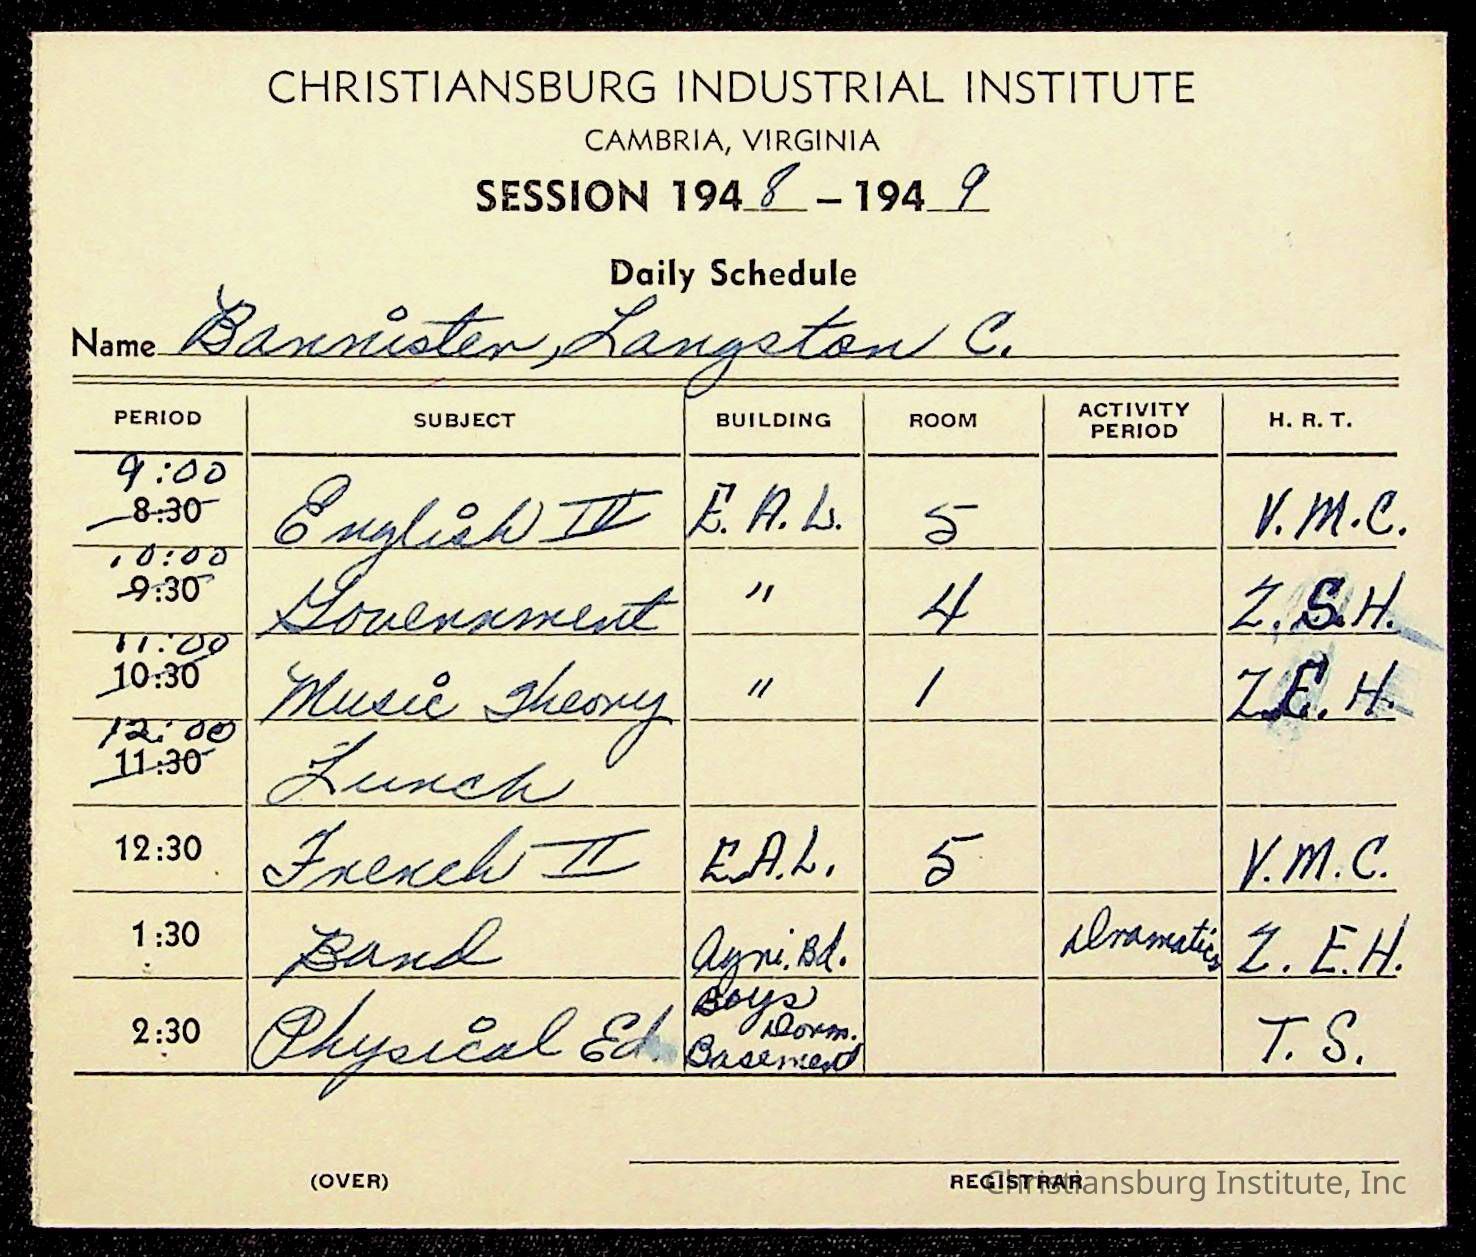 CHRISTIANSBURG INDUSTRIAL INSTITUTE
CAMBRIA, VIRGINIA
SESSION 1948 – 1949
Daily Schedule
Name Bannister, Langston C.
PERIOD SUBJECT BUILDING ROOM ACTIVITY PERIOD H. R. T.
9:00
8:30 English IV E. A. L. 5 V. M. C.
10:00
9:30 Government " 4 Z. S. H.
11:00
10:30 Music Theory " 1 Z. E. H.
12:00
11:30 Lunch
12:30 French II E. A. L. 5 V. M. C.
1:30 Band Agri. Bd. Dramatics Z. E. H.
2:30 Physical Ed. Boys Dorm. Basement T. S.
(OVER) REGISTRAR
Christiansburg Institute, Inc